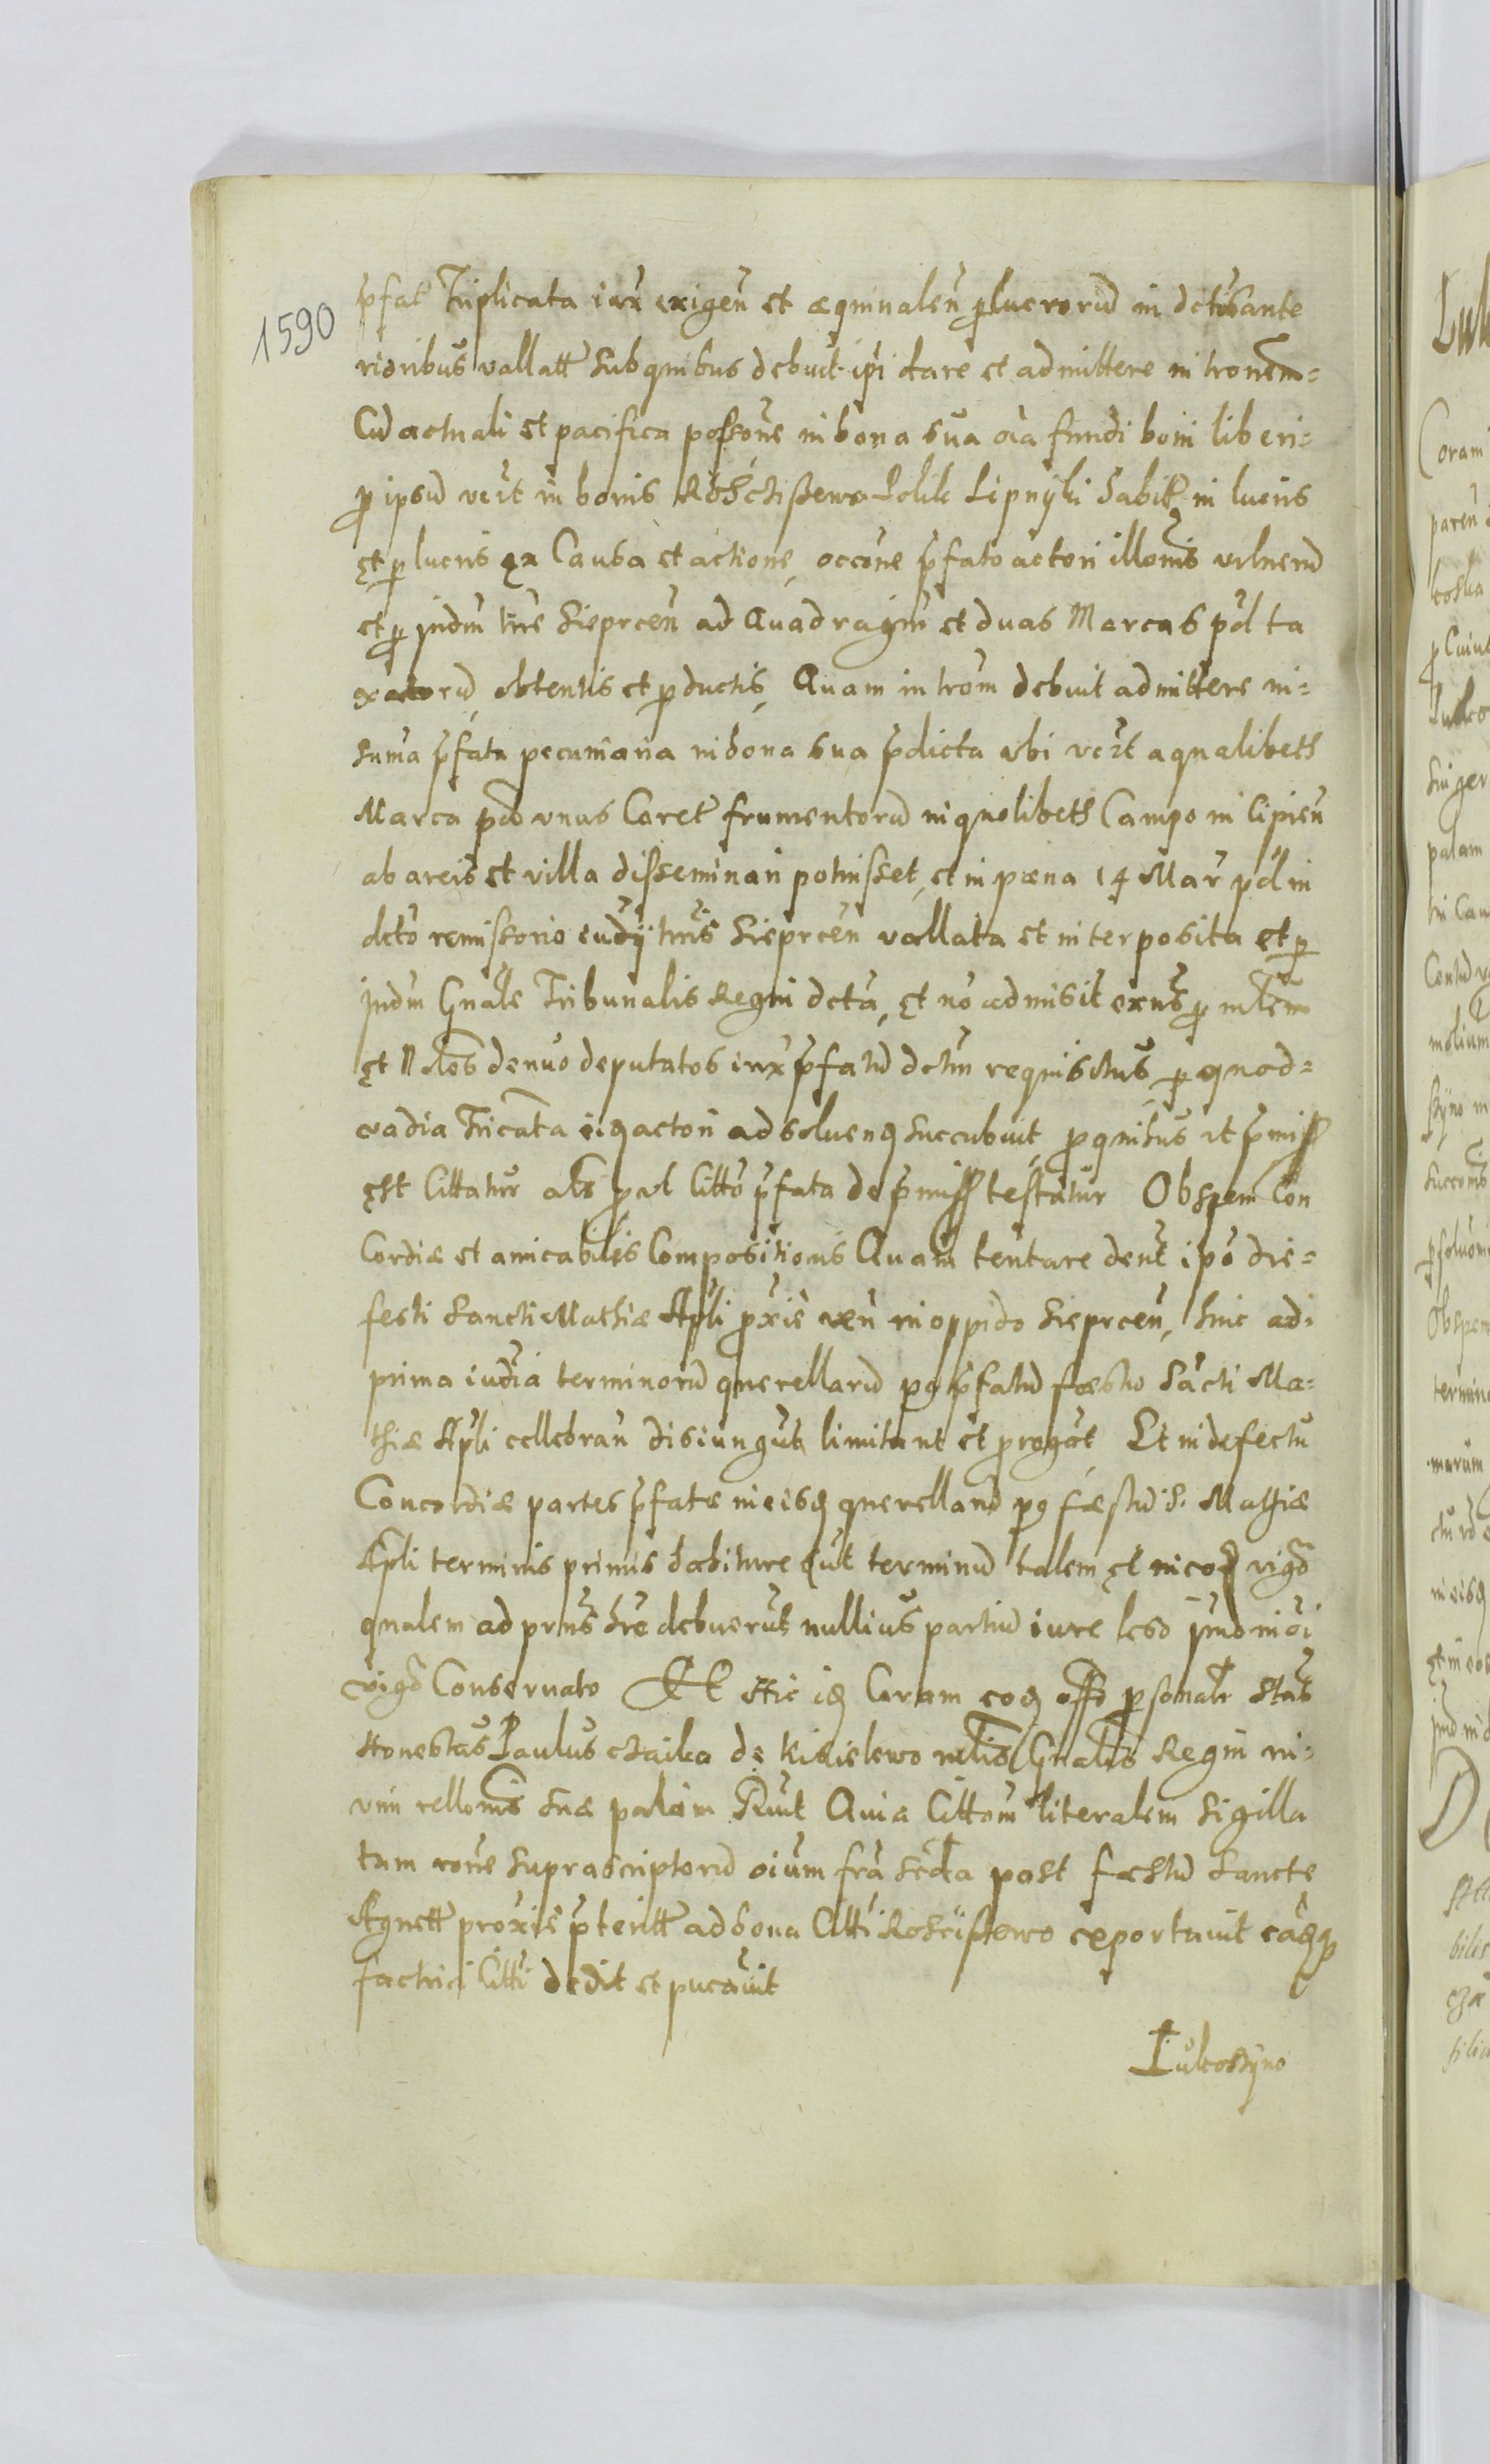 1590
pfat Triplicata iux exigen et æquiualen p lucrorum in dctis ante
rioribus vallatt sub quibus debuit ipsi dare et admittere introm=
Cum actuali et pacifica possone in bona sua oia fundi boni liberi=
p ipsum vert in bonis Rosciszewo Lolik Lipnyki habit in lucris
et p lucris ex Causa et actione occone pfato actori illonis vulnerum
et p Judm tre Sieprcen ad Quadragin et duas Marcas pol ta
xatorum obtentis et pductis, Quam introm debuit admittere in=
suma pfata pecuniaria in bona sua pdicta vbi vert a qualibeth
Marca pcdo vnus Coret frumentorum in quolibeth Campo incipien
ab areis et villa disseminari potuisset, et in pæna 14 Mar pol in
dcto remissorio iudÿ tris Sieprcen vallata et interposita et p
Judm Gnale Tribunalis Regni dcta, et no admisit exns p mlem
et Nobles denuo deputatos iux pfatum dctum requisitus p quod=
vadia Tricata eiq actori ad soluend succubuit, p quibus vt pmiss
est Cittatur als p vl Citto pfata de pmiss testatur Ob spem Con
Cordiæ et amicabilis Compositionis Quam tentare dent ipo die=
festi Sancti Mathiæ Apli pxie ven in oppido Sieprcen, hinc ad
prima iudia terminorum querellarum pq pfatum fæstum Sacti Ma=
thiæ Apli cellebran disiungut limitant et progat Et in defectu
Concordiæ partes pfatæ in eisq querellarum pq fæstum S. Mathiæ
Apli terminis primis habituræ sut terminum talem et in eod vigo
qualem ad prns hre debuerut nullius partium iure leso Jmo in oi
vigo Conseruato Et Hic iq Coram eoq offo psonalr stas
Honestus Paulus chaika de Kisielewo mlis Gnalis Regni in=
vim rellonis suæ palam Rcvit Quia Cittom literalem sigilla
tam rone suprascriptorum oium fra scda post fæstum Sancte
Agnett proxie pteritt ad bona Citti Rosciszewo exportauit eaqq
factrici Citti dedit et pucauit
Lulkoszyno